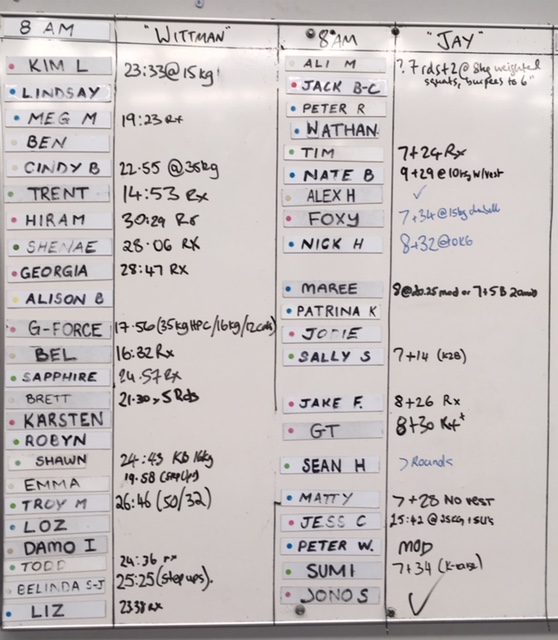 8 AM "WITTMAN"
KIM L 23:33@15kg
LINDSAY
MEG M 19:23 Rx
BEN
CINDY B 22:55 @35kg
TRENT 14:53 Rx
HIRAM 30:29 Rx
SHENAE 28:06 RX
GEORGIA 28:47 RX
ALISON B
G-FORCE 17:56 (35kg HPC/16kg/12cals)
BEL 16:32 Rx
SAPPHIRE 24:57 Rx
BRETT 21:30 > 5 Rds
KARSTEN
ROBYN
SHAWN 24:43 KB 16kg
EMMA 19:58 (step ups)
TROY M 26:46 (50/32)
LOZ
DAMO I
TODD 24:36 rx
BELINDA S-J 25:25 (step ups).
LIZ 23:38 RX
8AM "JAY"
ALI M ? 7 rds+2 @ 8kg weighted
squats, burpees to 6"
JACK B-C
PETER R
WATHAN
TIM 7+24 Rx
NATE B 9+29 @10kg w/vest
ALEX H ✓
FOXY 7+34 @15kg dumbell
NICK H 8+32 @0KG
MAREE mod or 7+5
PATRINA K
JODIE
SALLY S 7+14 (K2B)
JAKE F. 8+26 Rx
GT 8+30 Rx+
SEAN H 7 Rounds
MATTY 7+28 No vest
JESS C @35kg
PETER W. MOD
SUMI 7+34 (K-raise)
JONO S ✓